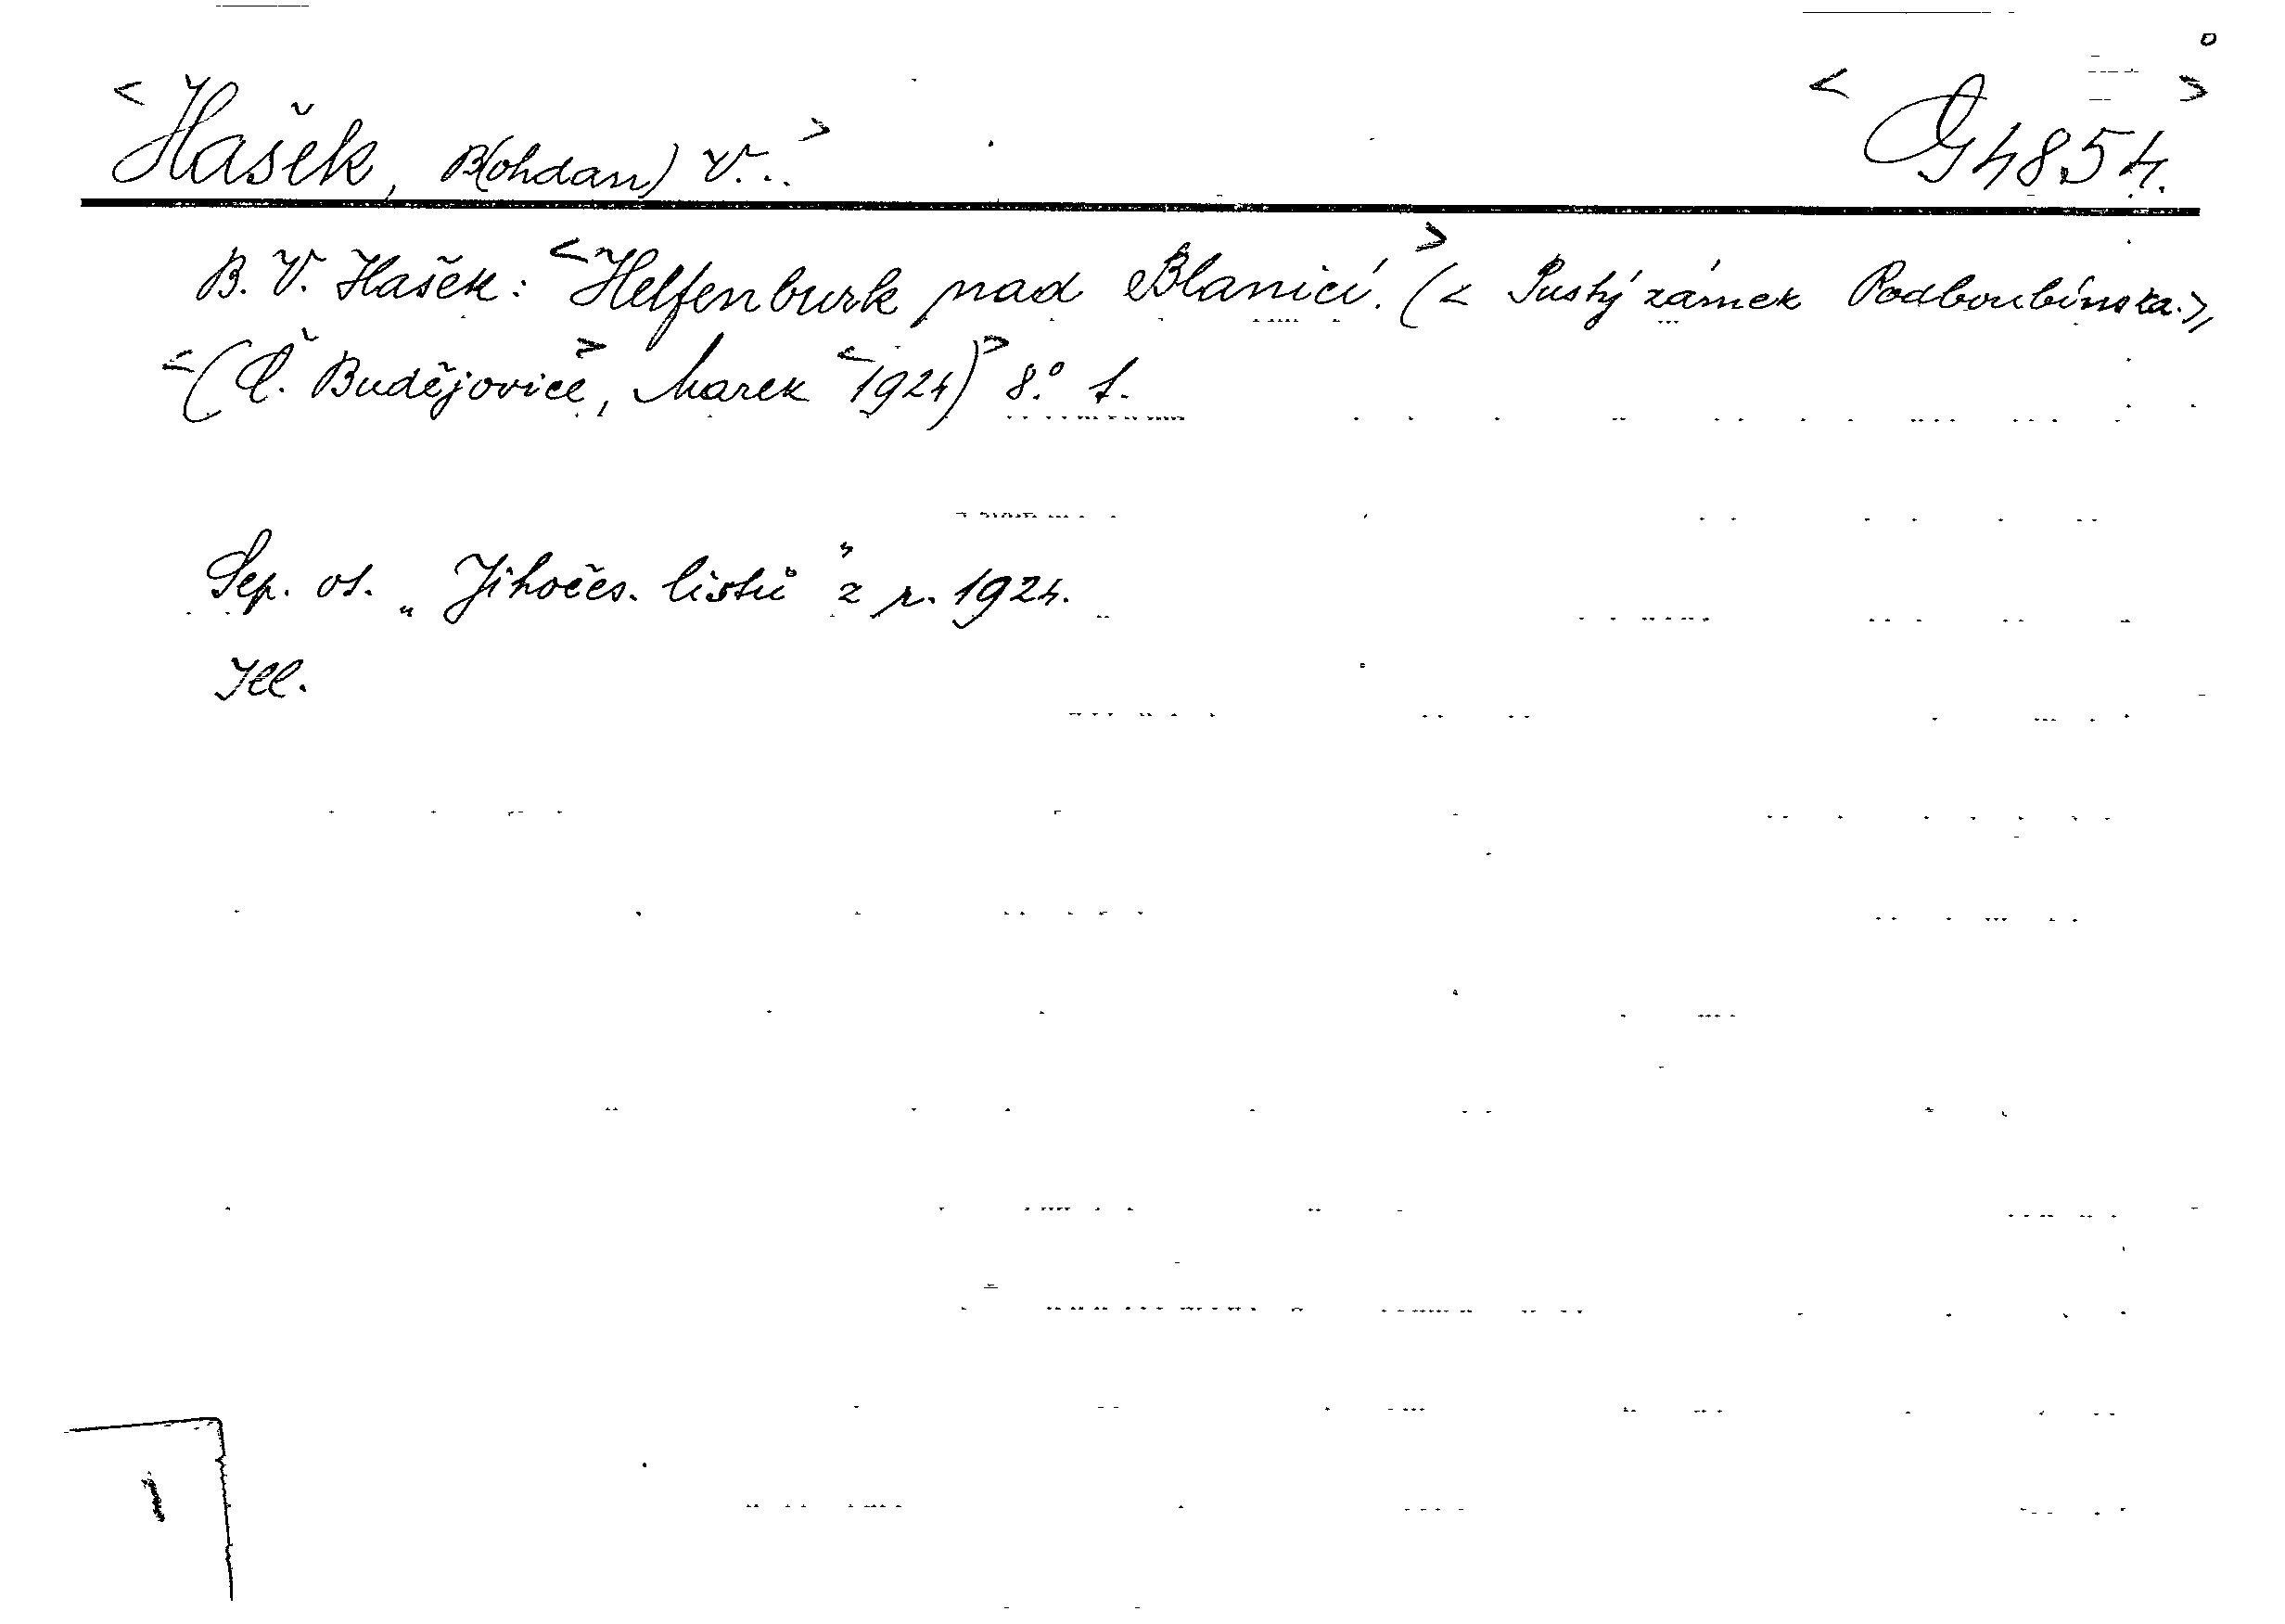 <Hašek, B(ohdan) V...> <G 4854.>
B. V. Hašek: <Helfenburk nad Blanicí.> (< Pustý zámek Podboubínska.>),
<(Č. Budějovice>, Marek <1924)> 8.° 1.
Sep. ot. „Jihočes. listů" z r. 1924.
Ill.
1